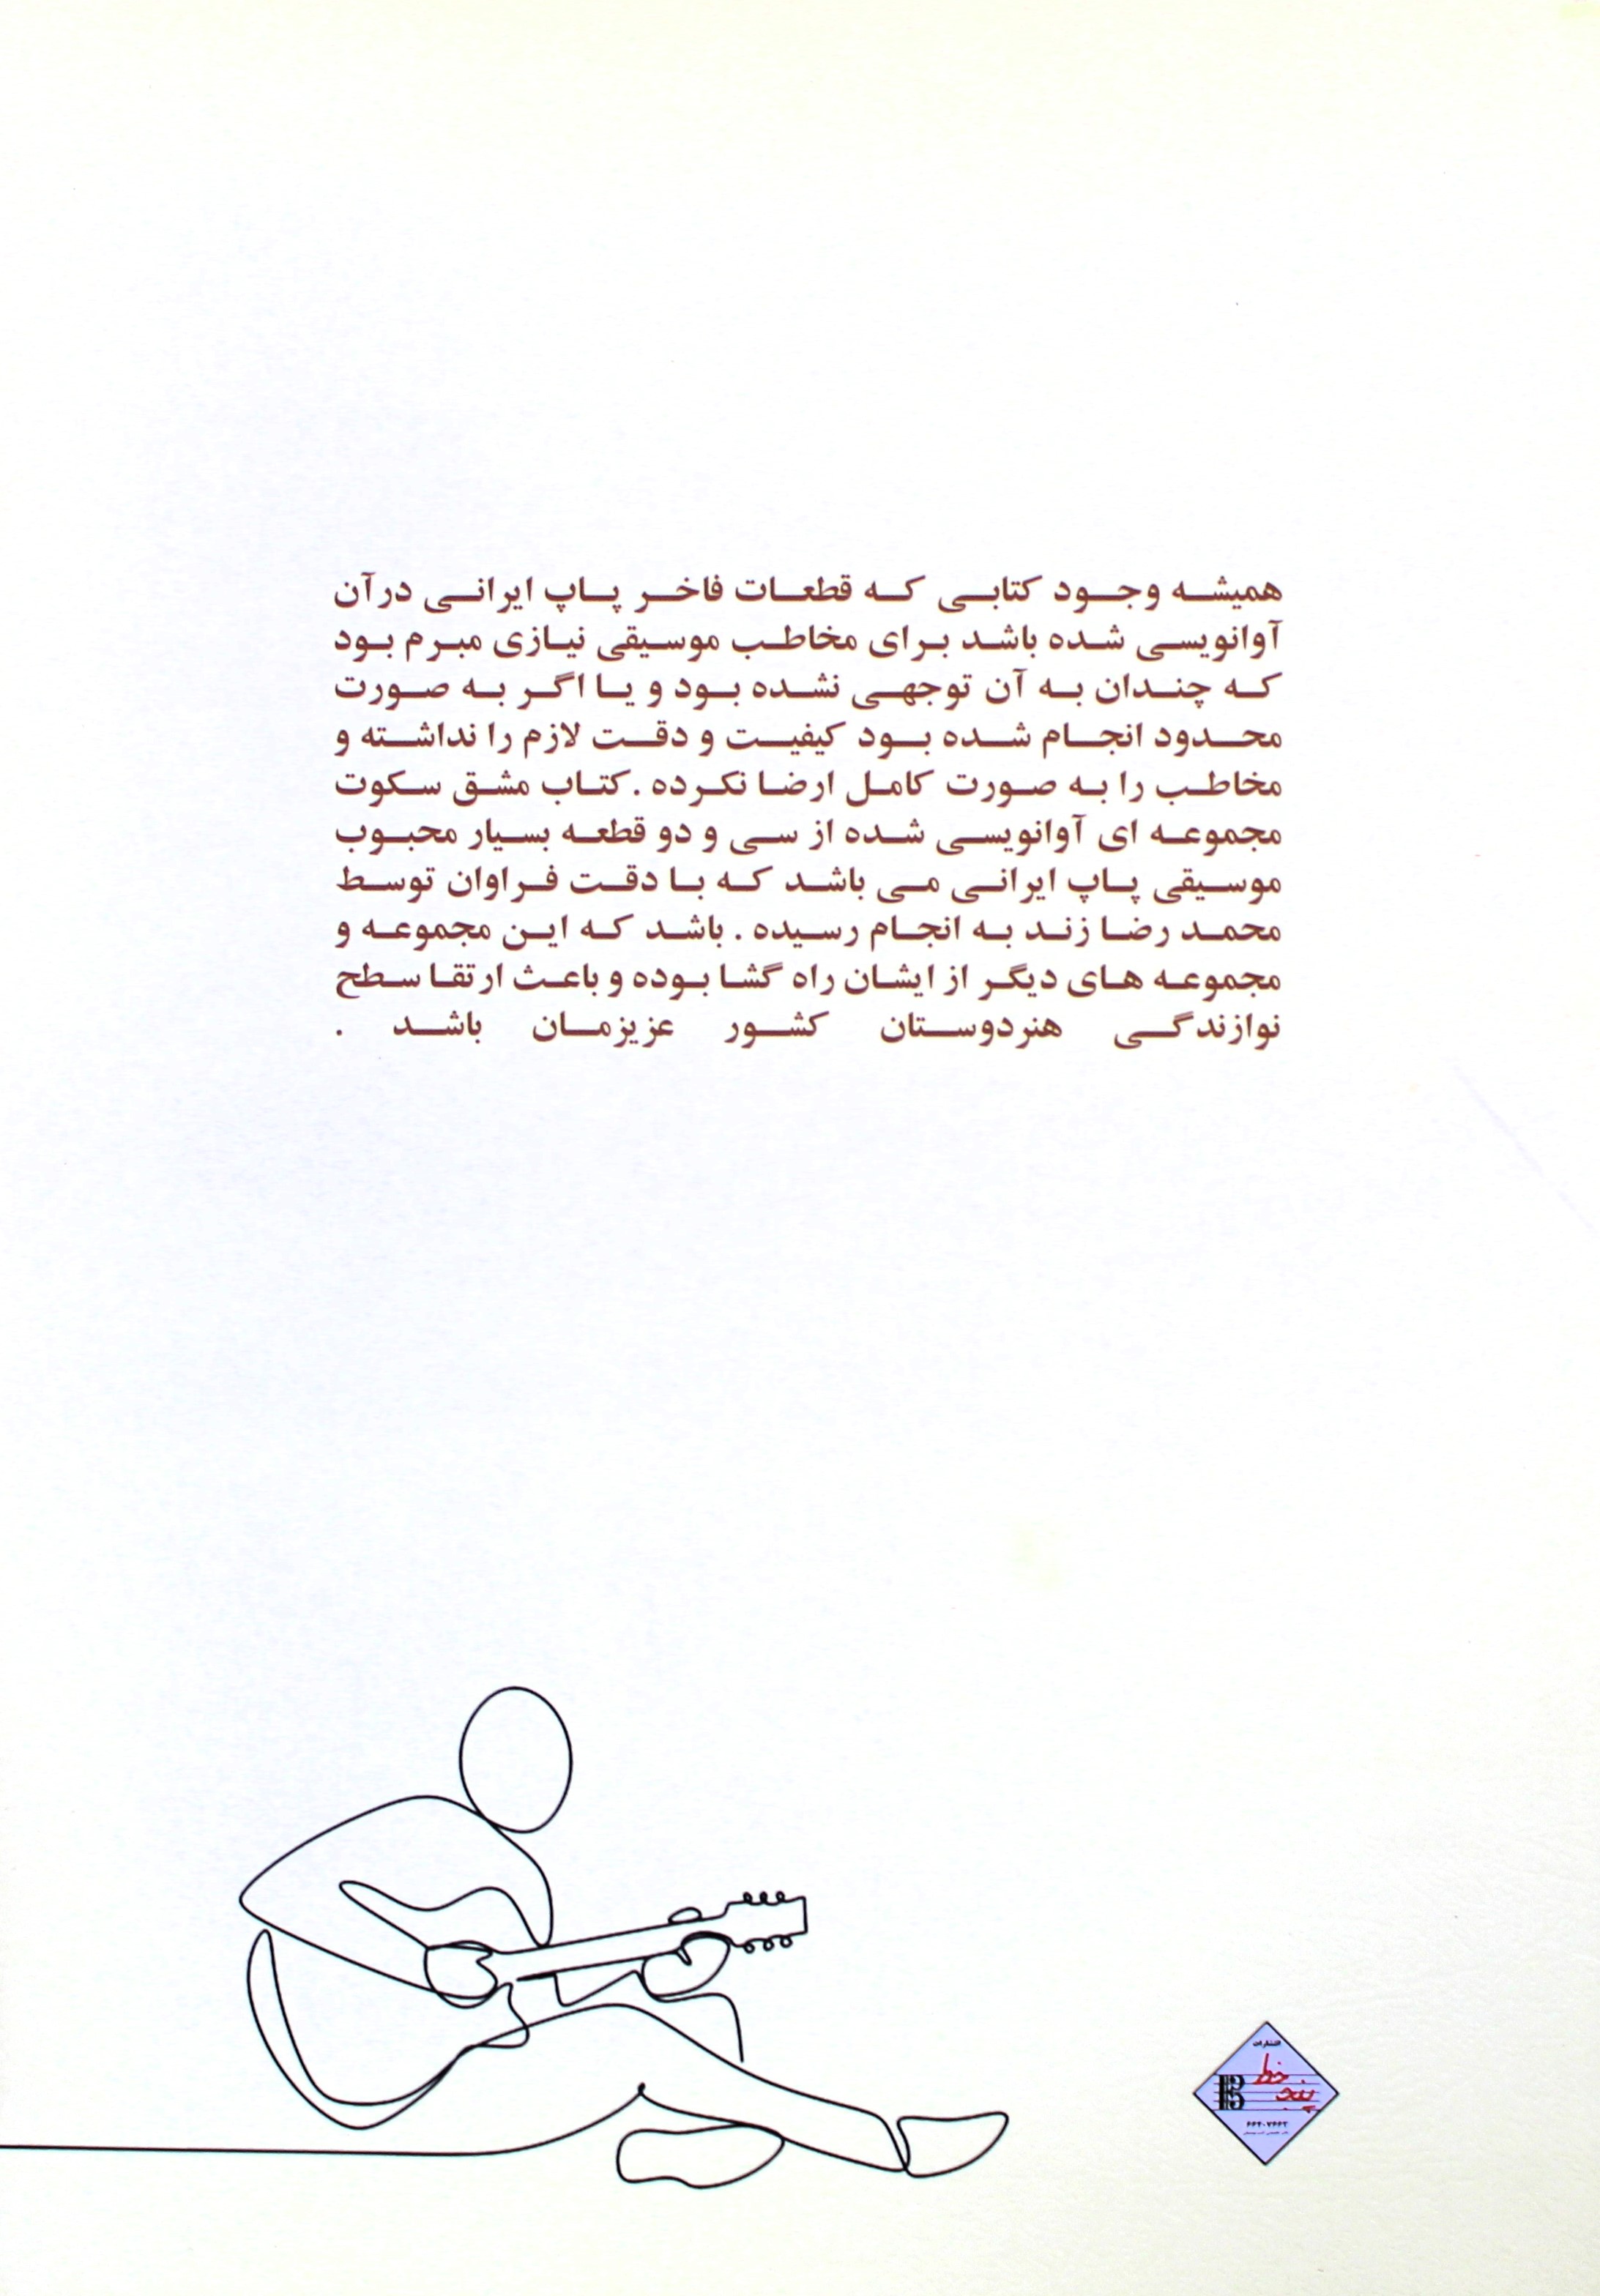 همیشه وجود کتابی که قطعات فاخر پاپ ایرانی درآن
آوانویسی شده باشد برای مخاطب موسیقی نیازی مبرم بود
که چندان به آن توجهی نشده بود و یا اگر به صورت
محدود انجام شده بود کیفیت و دقت لازم را نداشته و
مخاطب را به صورت کامل ارضا نکرده . کتاب مشق سکوت
مجموعه ای آوانویسی شده از سی و دو قطعه بسیار محبوب
موسیقی پاپ ایرانی می باشد که با دقت فراوان توسط
محمد رضا زند به انجام رسیده . باشد که این مجموعه و
مجموعه های دیگر از ایشان راه گشا بوده و باعث ارتقا سطح
نوازندگی هنردوستان کشور عزیزمان باشد .
انتشارات
پنج خط